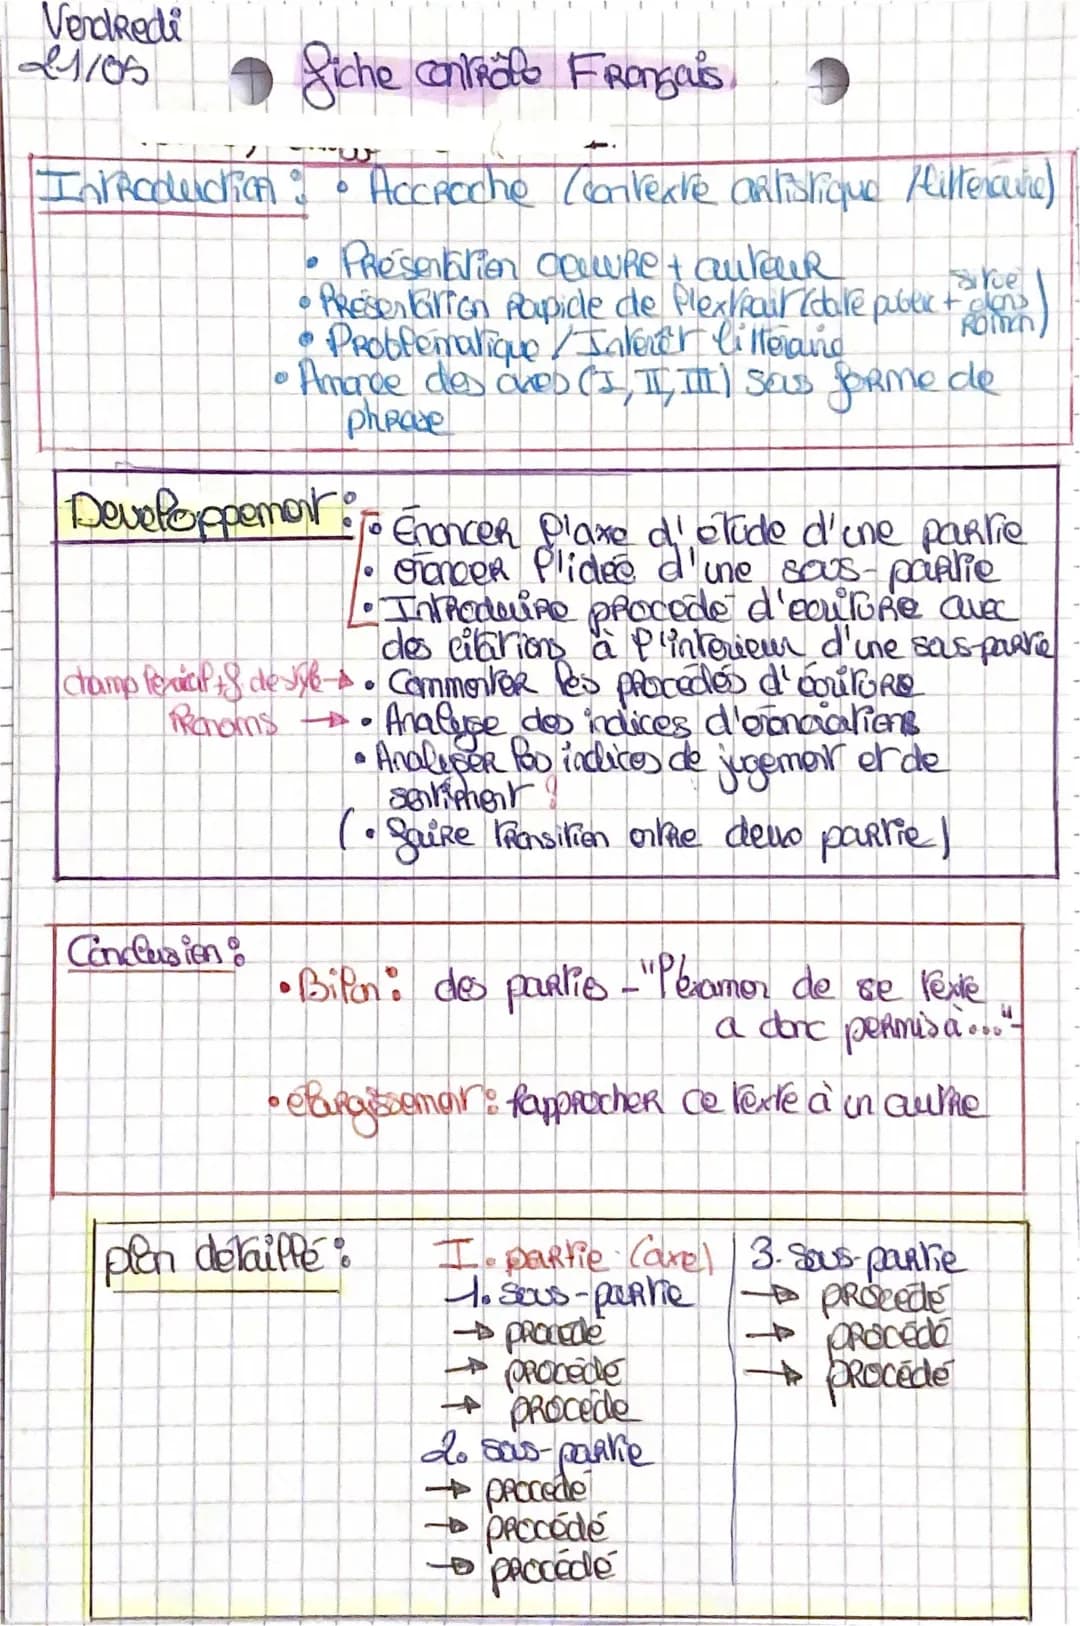 Vendredi
21/05
fiche contrôle Français
Introduction : • Accroche (contexte artistique / littéraire)
• Présentation oeuvre + auteur
• Présentation rapide de l'extrait (date public + situe dans roman)
• Problématique / Intérêt littéraire
• Annonce des axes (I, II, III) sous forme de
phrase
Developpement :
• Énoncer l'axe d'étude d'une partie
• énoncer l'idée d'une sous-partie
• Introduire procédé d'écriture avec
des citations à l'interieur d'une sous-partie
champ lexical + f de style → • Commenter les procédés d'écriture
Pronoms → • Analyse des indices d'énonciations
• Analyser les indices de jugement et de
sentiment !
(• faire transition entre deux partie)
Conclusion :
• Bilan : des parties - "l'examen de se texte
a donc permis à..." -
• élargissement : rapprocher ce texte à un autre
plan détaillé :
I. partie (axe)
1. sous-partie
→ procédé
→ procédé
→ procédé
2. sous-partie
→ procédé
→ procédé
→ procédé
3. sous-partie
→ procédé
→ procédé
→ procédé